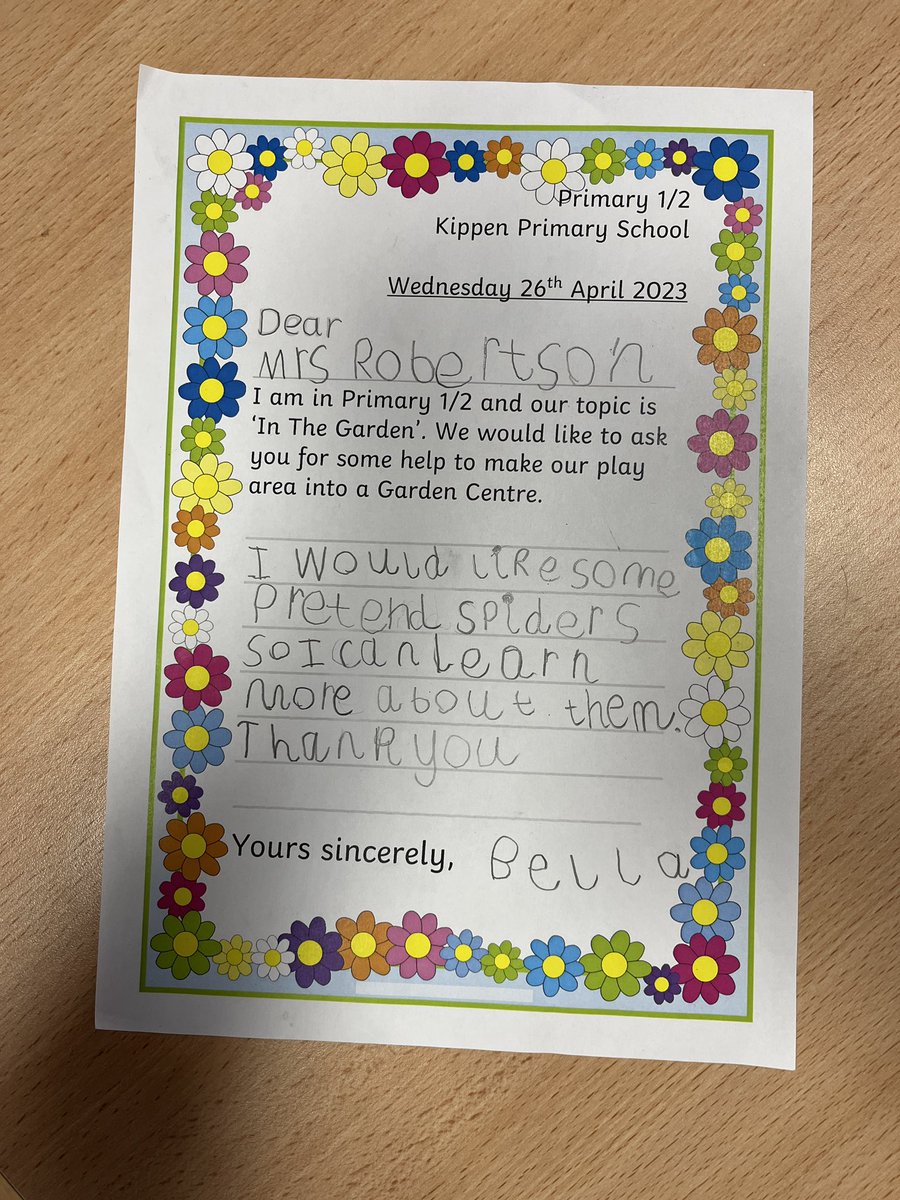 Primary 1/2
Kippen Primary School
Wednesday 26th April 2023
Dear
Mrs Robertson
I am in Primary 1/2 and our topic is
‘In The Garden’. We would like to ask
you for some help to make our play
area into a Garden Centre.
I would like some
pretend spiders
so I can learn
more about them.
Thank you
Yours sincerely, Bella